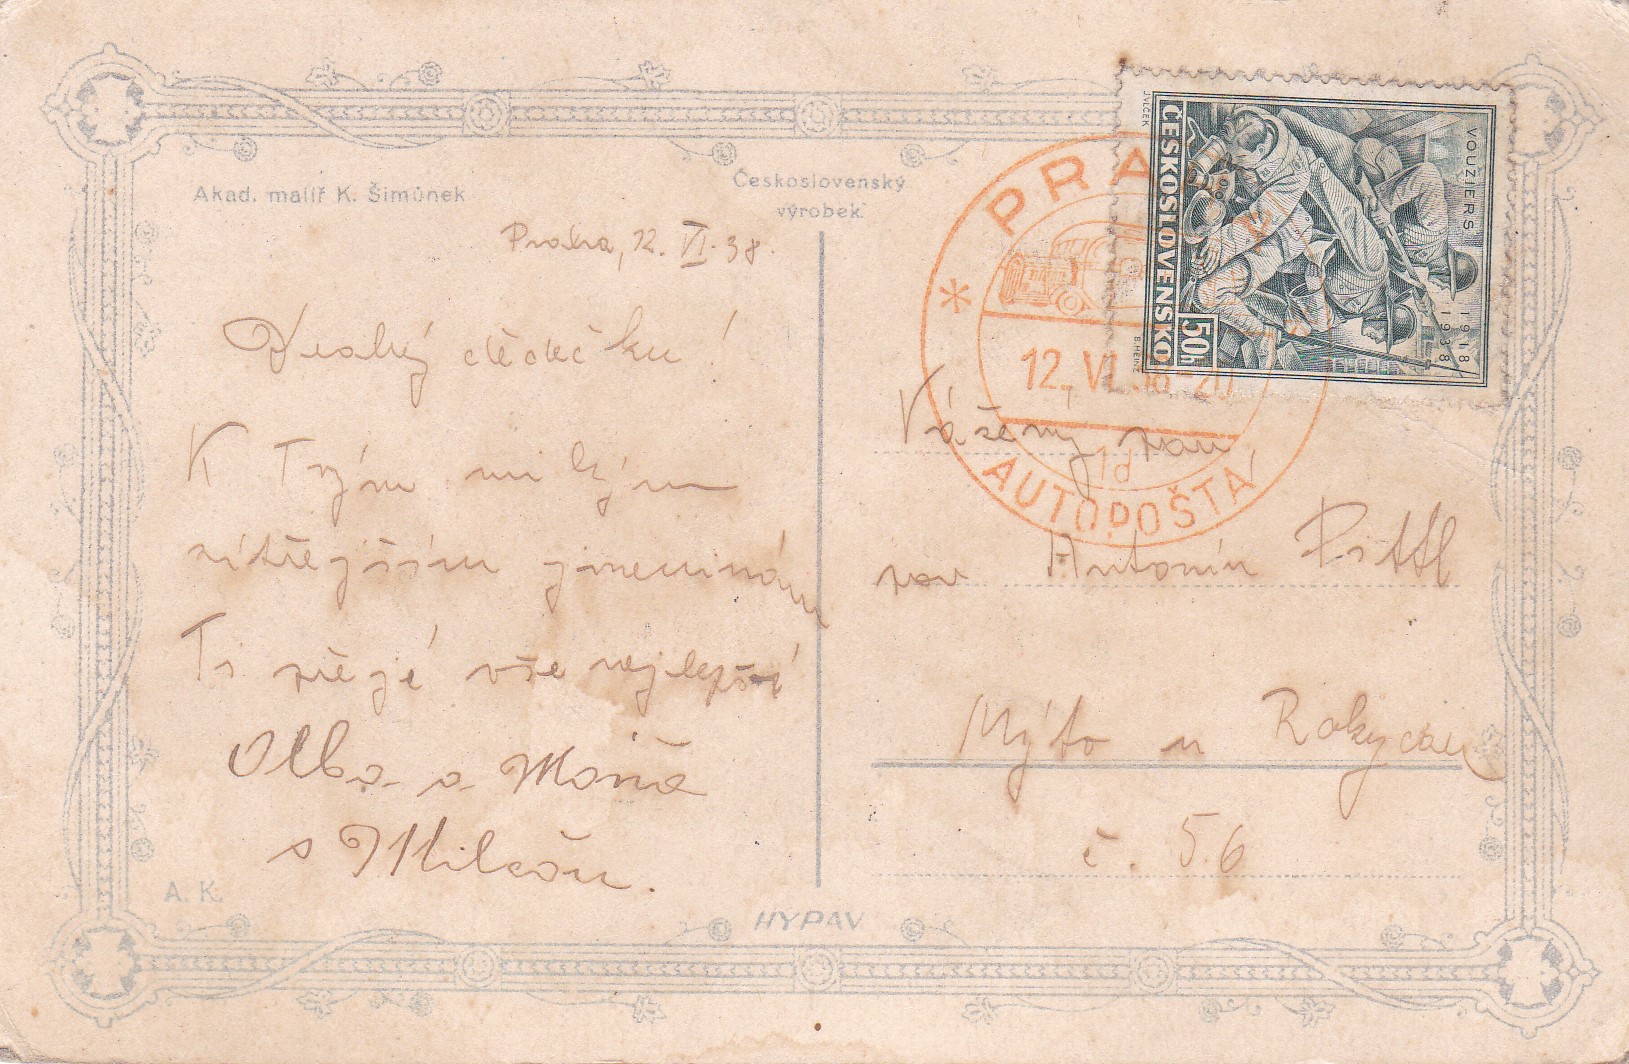 Akad. malíř K. Šimůnek
Československý
výrobek.
Praha, 12. VI. 38.
Drahý dědečku!
K Tvým milým
zítřejším jmeninám
Ti přeje vše nejlepší
Olba a Máňa
s Milčou.
A. K.
HYPAV
PRA
12. VI. 38-20
1d
AUTOPOŠTA
J. VLČEK
ČESKOSLOVENSKO
50h
B. HEINZ
VOUZIERS
1918
1938
Vážený pan
pan Antonín Pittl
Mýto u Rokycan
č. 56